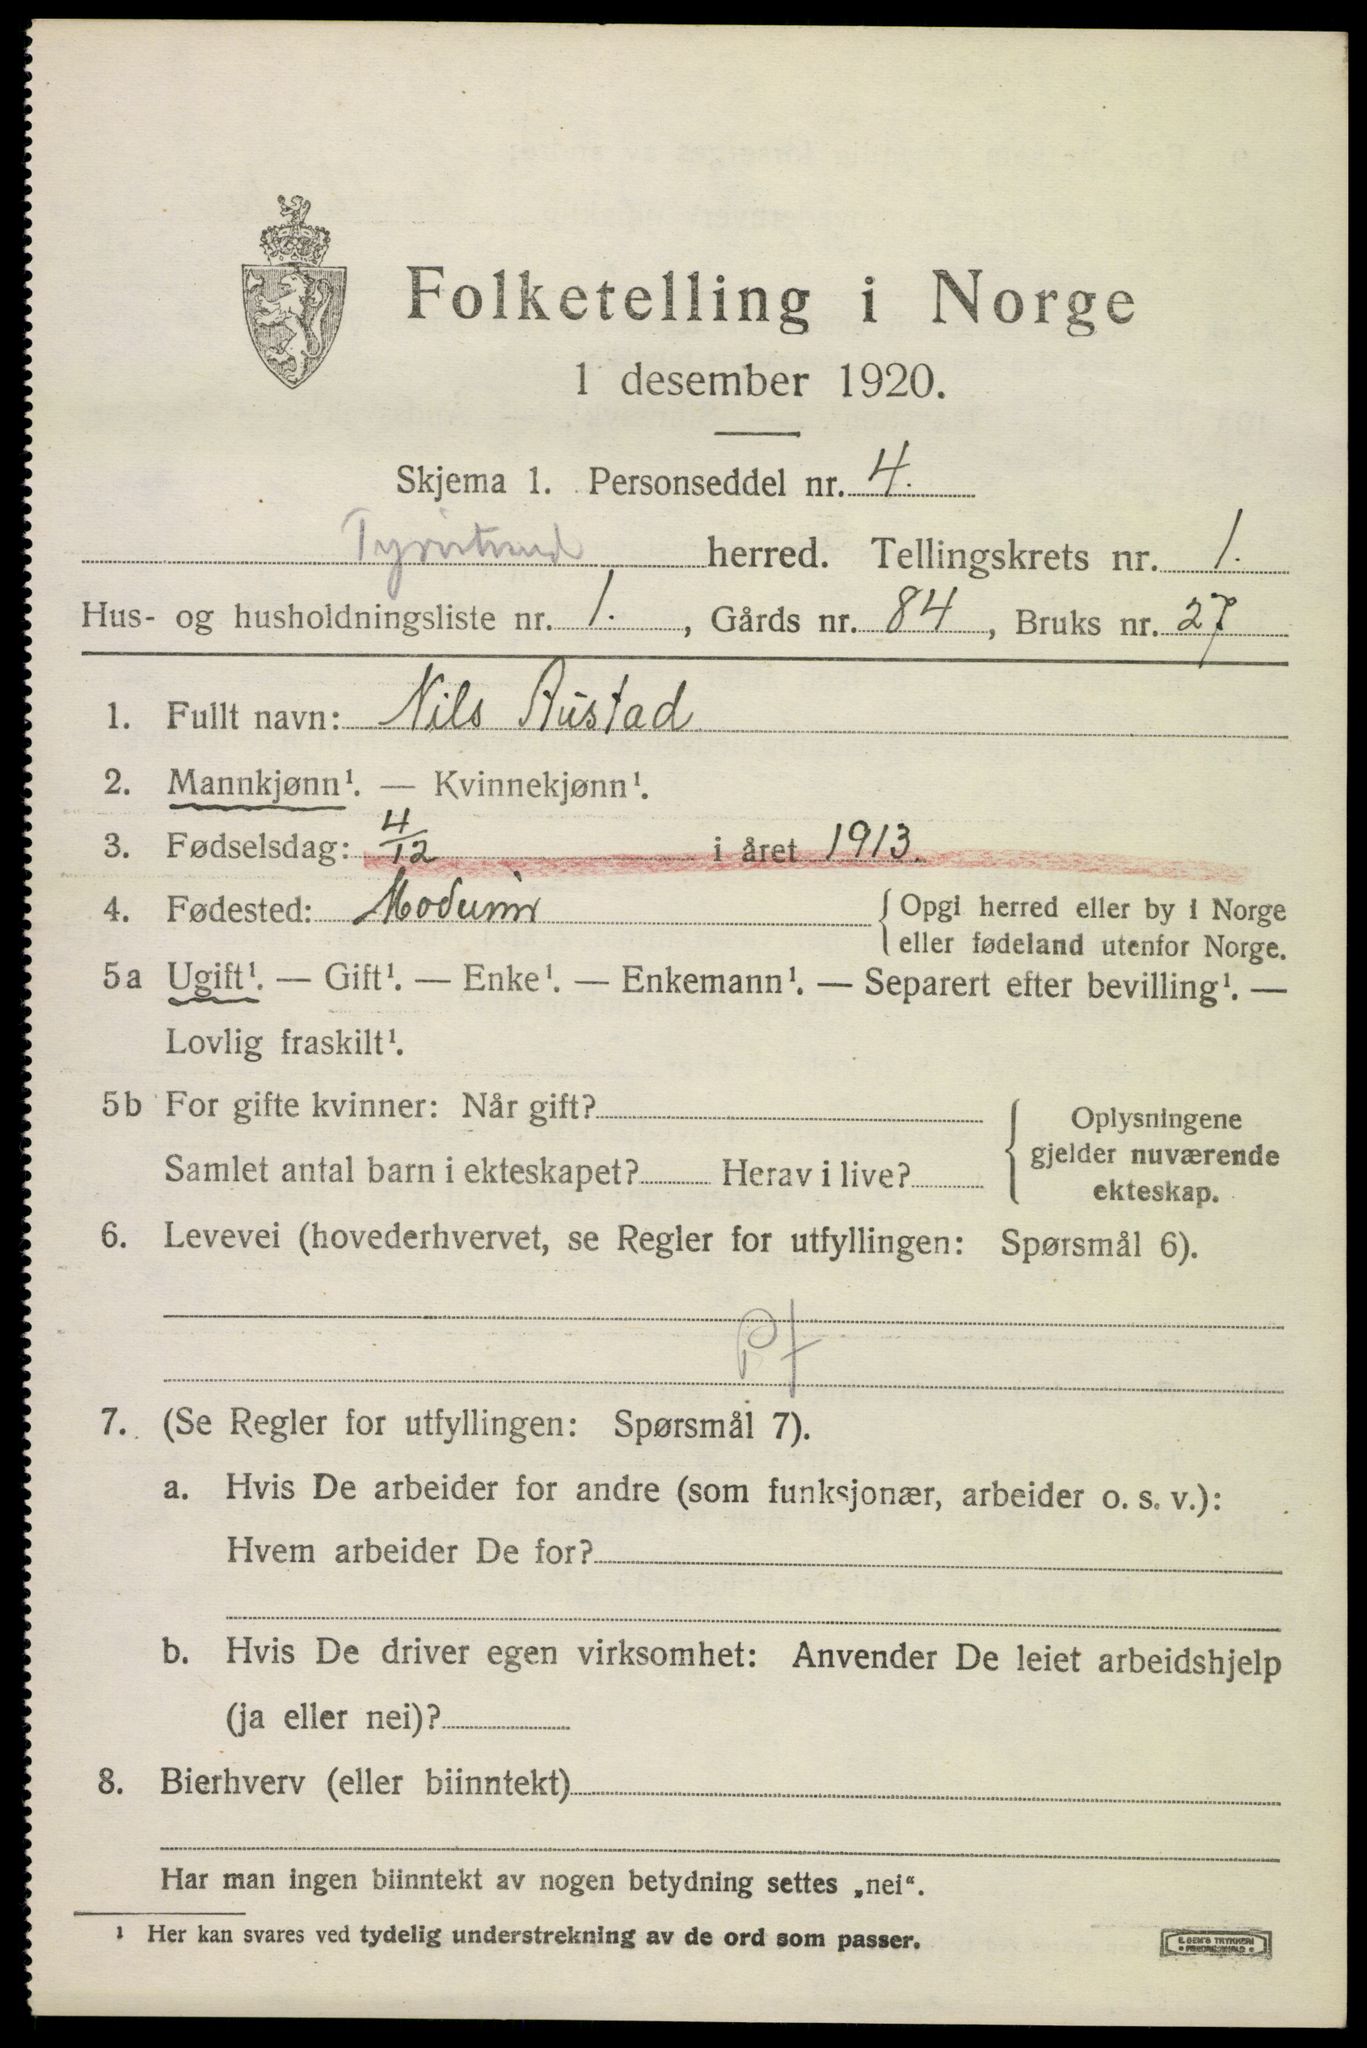 Folketelling i Norge
1 desember 1920.
Skjema 1. Personseddel nr. 4.
Tyristrand herred. Tellingskrets nr. 1.
Hus- og husholdningsliste nr. 1., Gårds nr. 84, Bruks nr. 27
1. Fullt navn: Nils Rustad
2. Mannkjønn¹. — Kvinnekjønn¹.
3. Fødselsdag: 4/12 i året 1913.
4. Fødested: Modum { Opgi herred eller by i Norge
eller fødeland utenfor Norge.
5a Ugift¹. — Gift¹. — Enke¹. — Enkemann¹. — Separert efter bevilling¹. —
Lovlig fraskilt¹.
5b For gifte kvinner: Når gift?
Samlet antal barn i ekteskapet? Herav i live?
Oplysningene
gjelder nuværende
ekteskap.
6. Levevei (hovederhvervet, se Regler for utfyllingen: Spørsmål 6).
7. (Se Regler for utfyllingen: Spørsmål 7).
a. Hvis De arbeider for andre (som funksjonær, arbeider o. s. v.):
Hvem arbeider De for?
b. Hvis De driver egen virksomhet: Anvender De leiet arbeidshjelp
(ja eller nei)?
8. Bierhverv (eller biinntekt)
Har man ingen biinntekt av nogen betydning settes „nei“.
¹ Her kan svares ved tydelig understrekning av de ord som passer.